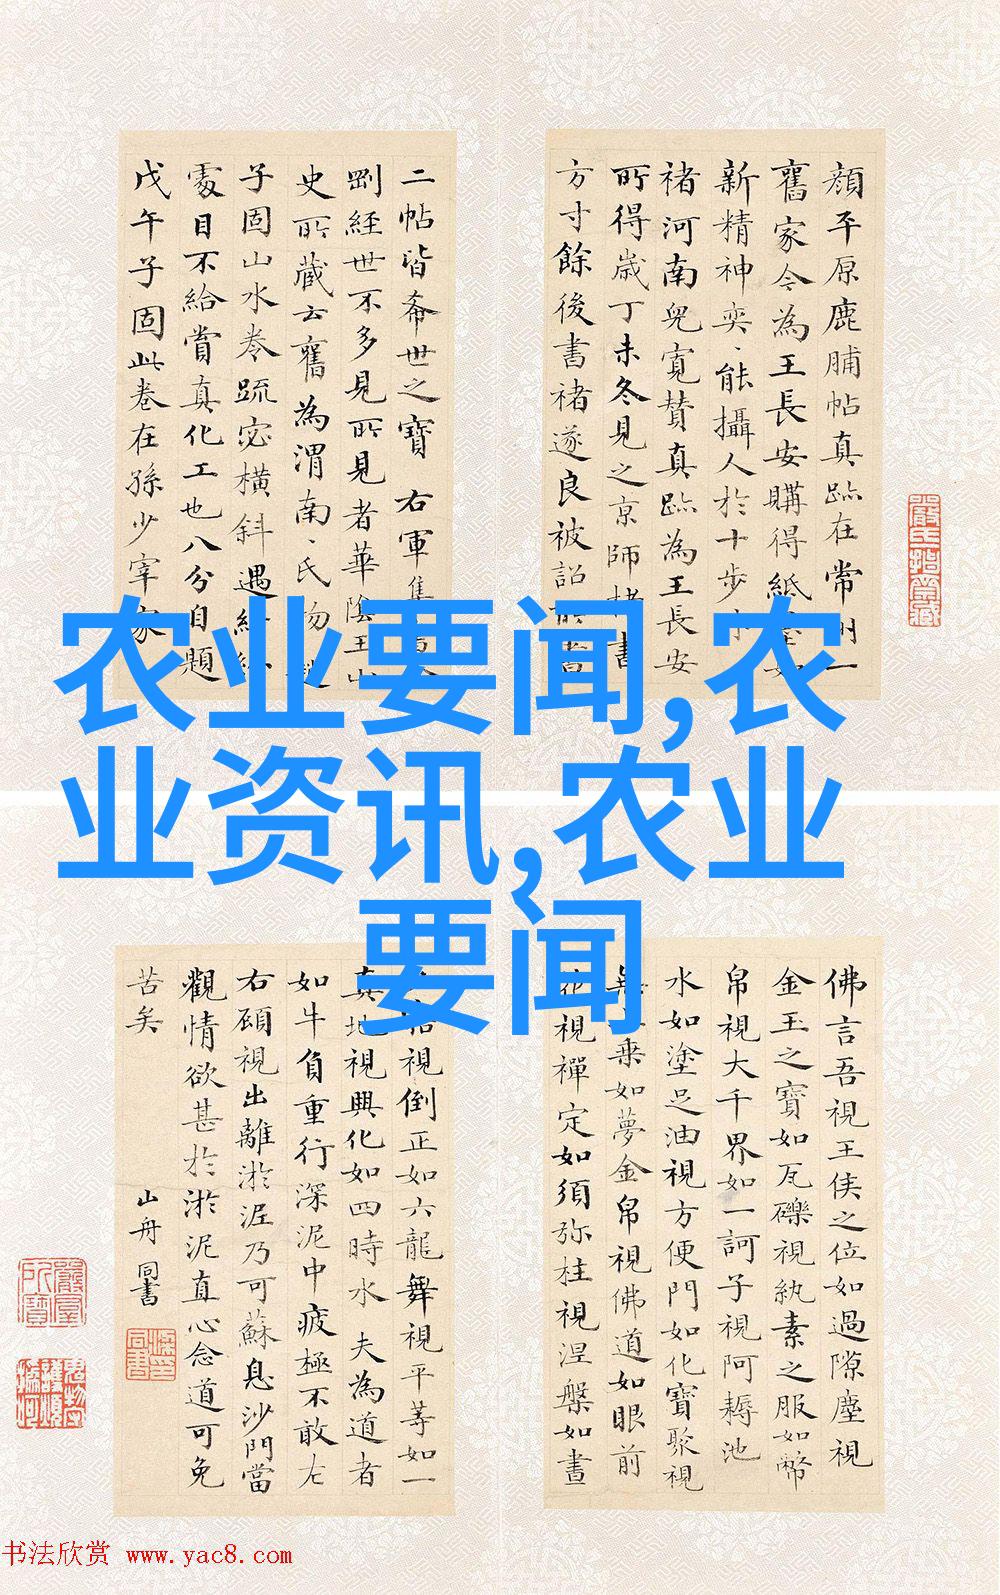 顔平原鹿脯帖真跡在常州一
舊家今為王長安購得紙
新精神奕、能攝人於十步
褚河南兒寬贊真跡為王長安
所得歲丁未冬見之京師楷書
方寸餘後書褚遂良被詔
二帖皆希世之寶 右軍集
劉經世不多見所見者華陰王山
史所藏云舊為渭南、氏物
子固山水卷疏密橫斜遇
目不給賞真化工也八分自題
戊午子固此卷在孫少宰家
农业要闻,农
业资讯,农业
要闻
佛言吾視王侯之位如過隙塵視
金玉之寶如瓦礫視紈素之服如幣
帛視大千界如一訶子視阿耨池
水如塗足油視方便門如化寶聚視
無上乘如夢金帛視佛道如眼前
花視禪定如須弥柱視涅槃如晝
視倒正如六龍舞視平等如一
真地視興化如四時木 夫為道者
如牛負重行深泥中疲極不敢左
右顧視出離淤泥乃可蘇息沙門當
觀情欲甚於淤泥直心念道可免
苦矣 山舟同書
书法欣赏 www.yac8.com